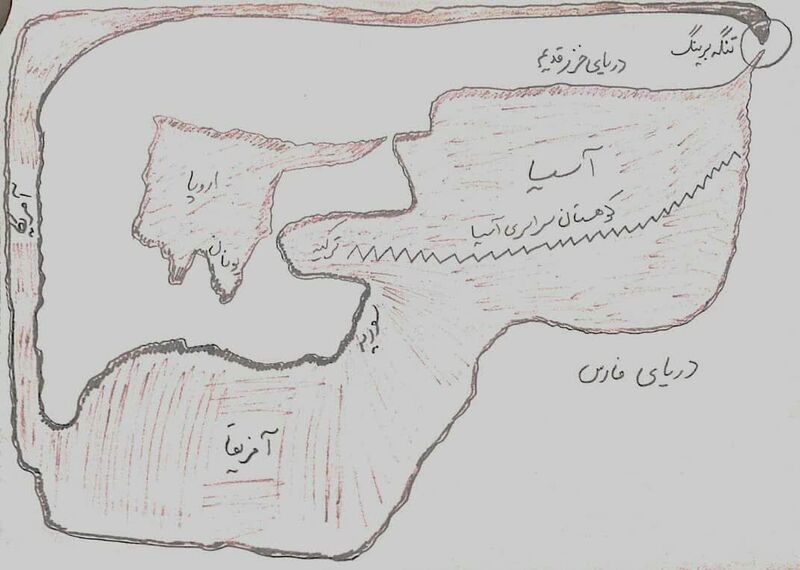 تنگه برینگ
دریای خزر قدیم
آسیا
کوهستان سراسری آسیا
اروپا
یونان
ترکیه
آمریکا
سوریه
دریای فارس
آفریقا